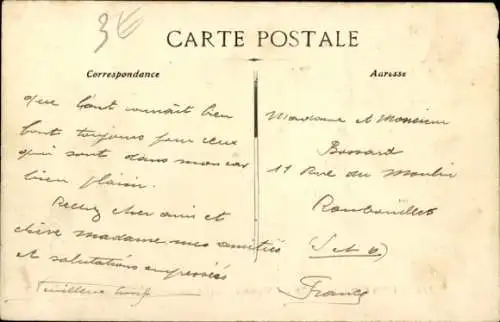 3€
CARTE POSTALE
Correspondance
Adresse
que l'ont connait bien
font toujours pour ceux
qui sont dans mon cas
bien plaisir.
Recevez cher ami et
chère madame mes amitiés
et salutations empressées
Madame et Monsieur
Bossard
11 Rue du Moulin
Rambouillet
(S et O.)
France